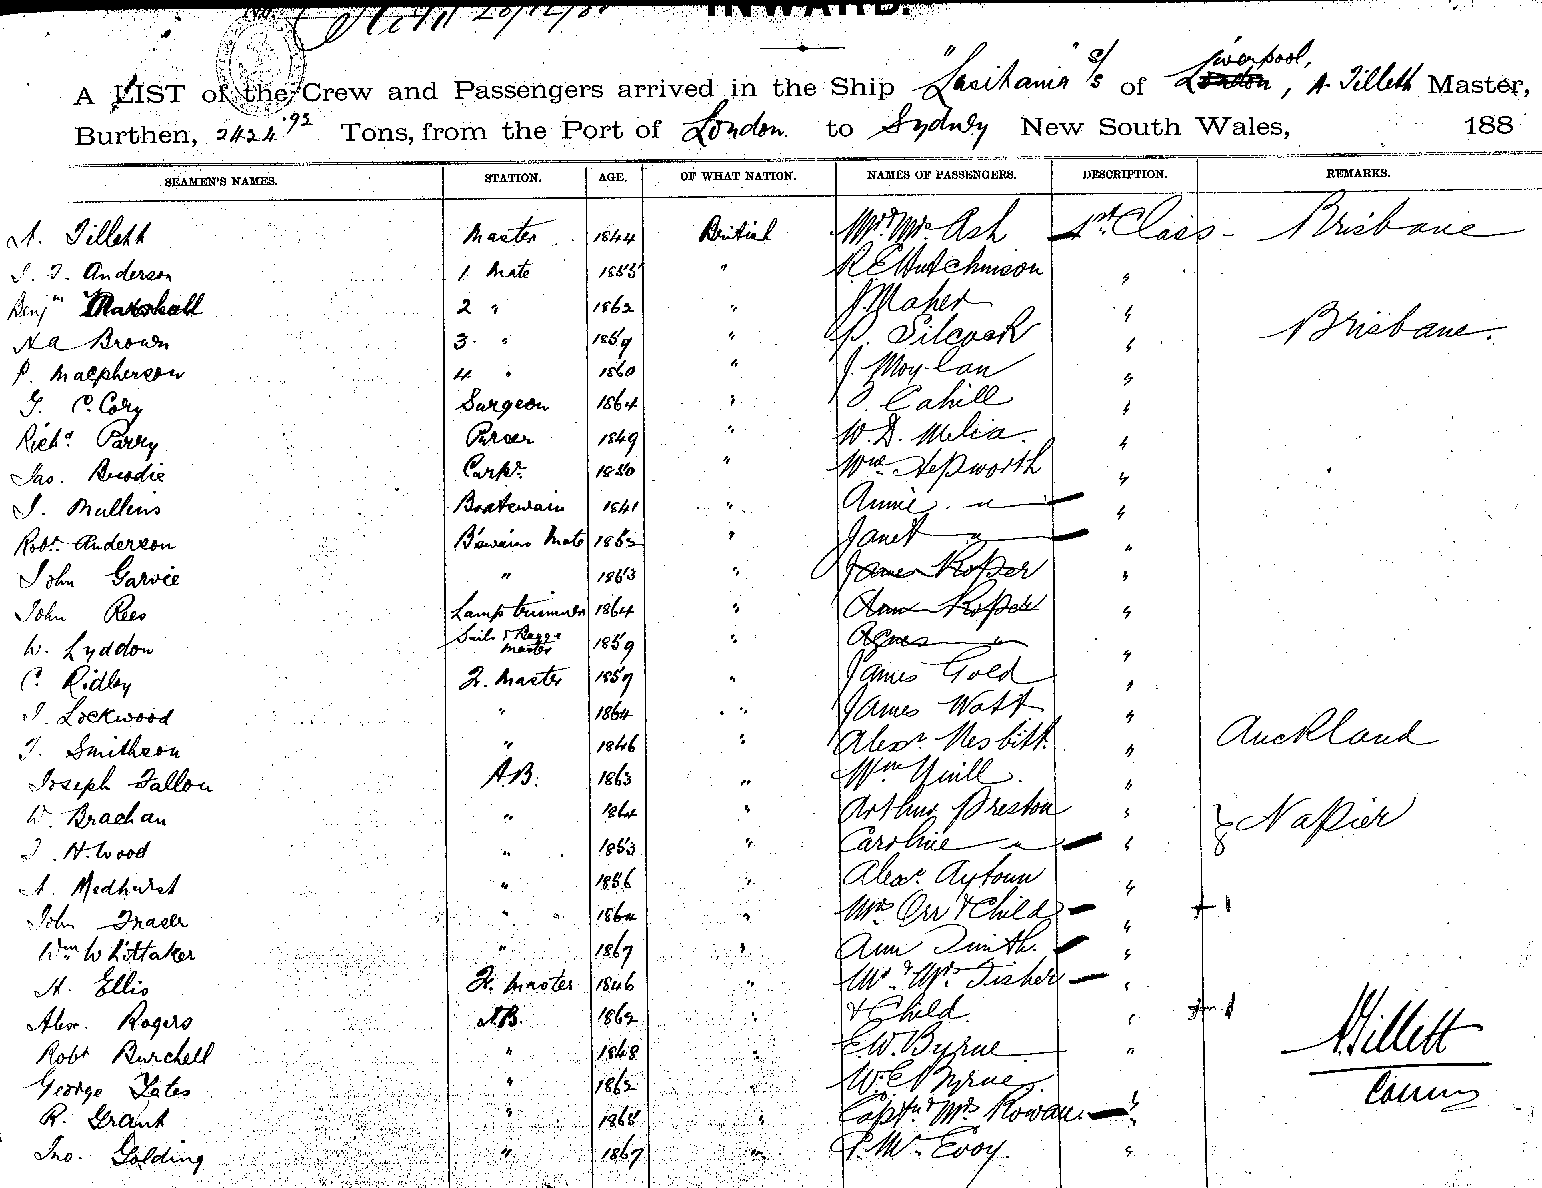 INWARD.
A LIST of the Crew and Passengers arrived in the Ship "Lusitania" s/s of Liverpool, A. Tillett Master,
Burthen, 2424 92 Tons, from the Port of London to Sydney New South Wales, 188
SEAMEN'S NAMES. STATION. AGE. OF WHAT NATION. NAMES OF PASSENGERS. DESCRIPTION. REMARKS.
A. Tillett Master 1844 British Mr & Mrs Ash 1st Class - Brisbane
Anderson 1 Mate 1855 " R E Hutchinson "
Benjn Marshall 2 " 1862 " J. Maher "
Brown 3 " 1859 " P. Silcock " Brisbane.
P. Macpherson 4 " 1860 " J. Moylan "
C. Cory Surgeon 1864 " Cahill "
Richd Parry Purser 1849 " W. D. Melia. "
Jas. Brodie Carpr. 1850 " Wm Hepworth "
J. Mullins Boatswain 1841 " Annie " "
Robt. Anderson B'swains Mate 1862 " Janet " "
John Garvie " 1863 " James Roper "
John Rees Lamp trimmer 1864 " Roper "
W. Lyddon Sails & Bagge master 1859 " Agnes " "
C. Ridley Q. Master 1859 " James Gold "
J. Lockwood " 1864 " James Watt "
J. Smithson " 1846 " Alexr. Nesbitt. " Auckland
Joseph Fallon A.B. 1863 " Wm "
W. " 1864 " Arthur Preston " } Napier
J. H. Wood " 1853 " Caroline " "
A. Medhurst " 1856 " Alexr. Aytoun "
John Fraser " 1864 " Mrs Orr & Child " + 1
Wm Whittaker " 1867 " Ann Smith. "
H. Ellis Q. Master 1846 " Mr. & Mrs. Fisher "
Alex. Rogers A.B. 1862 " & Child " + 1
Robt Burchell " 1848 " E. W. Byrne " A Tillett
George Yates " 1862 W. E. Byrne Comm
R. Grant " 1868 " Captn & Mrs Rowan. "
Jno. Golding " 1867 " Mc Evoy. "